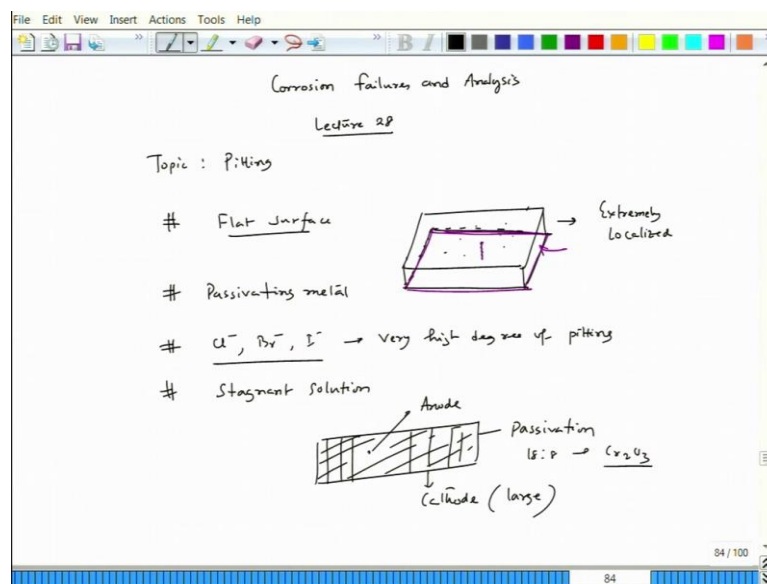 File Edit View Insert Actions Tools Help
B I
Corrosion failures and Analysis
Lecture 28
Topic : Pitting
# Flat surface
→ Extremely
Localized
# Passivating metal
# Cl⁻, Br⁻, I⁻ → Very high degree of pitting
# Stagnant solution
Anode
Passivation
18:8 → Cr₂O₃
Cathode (large)
84 / 100
84